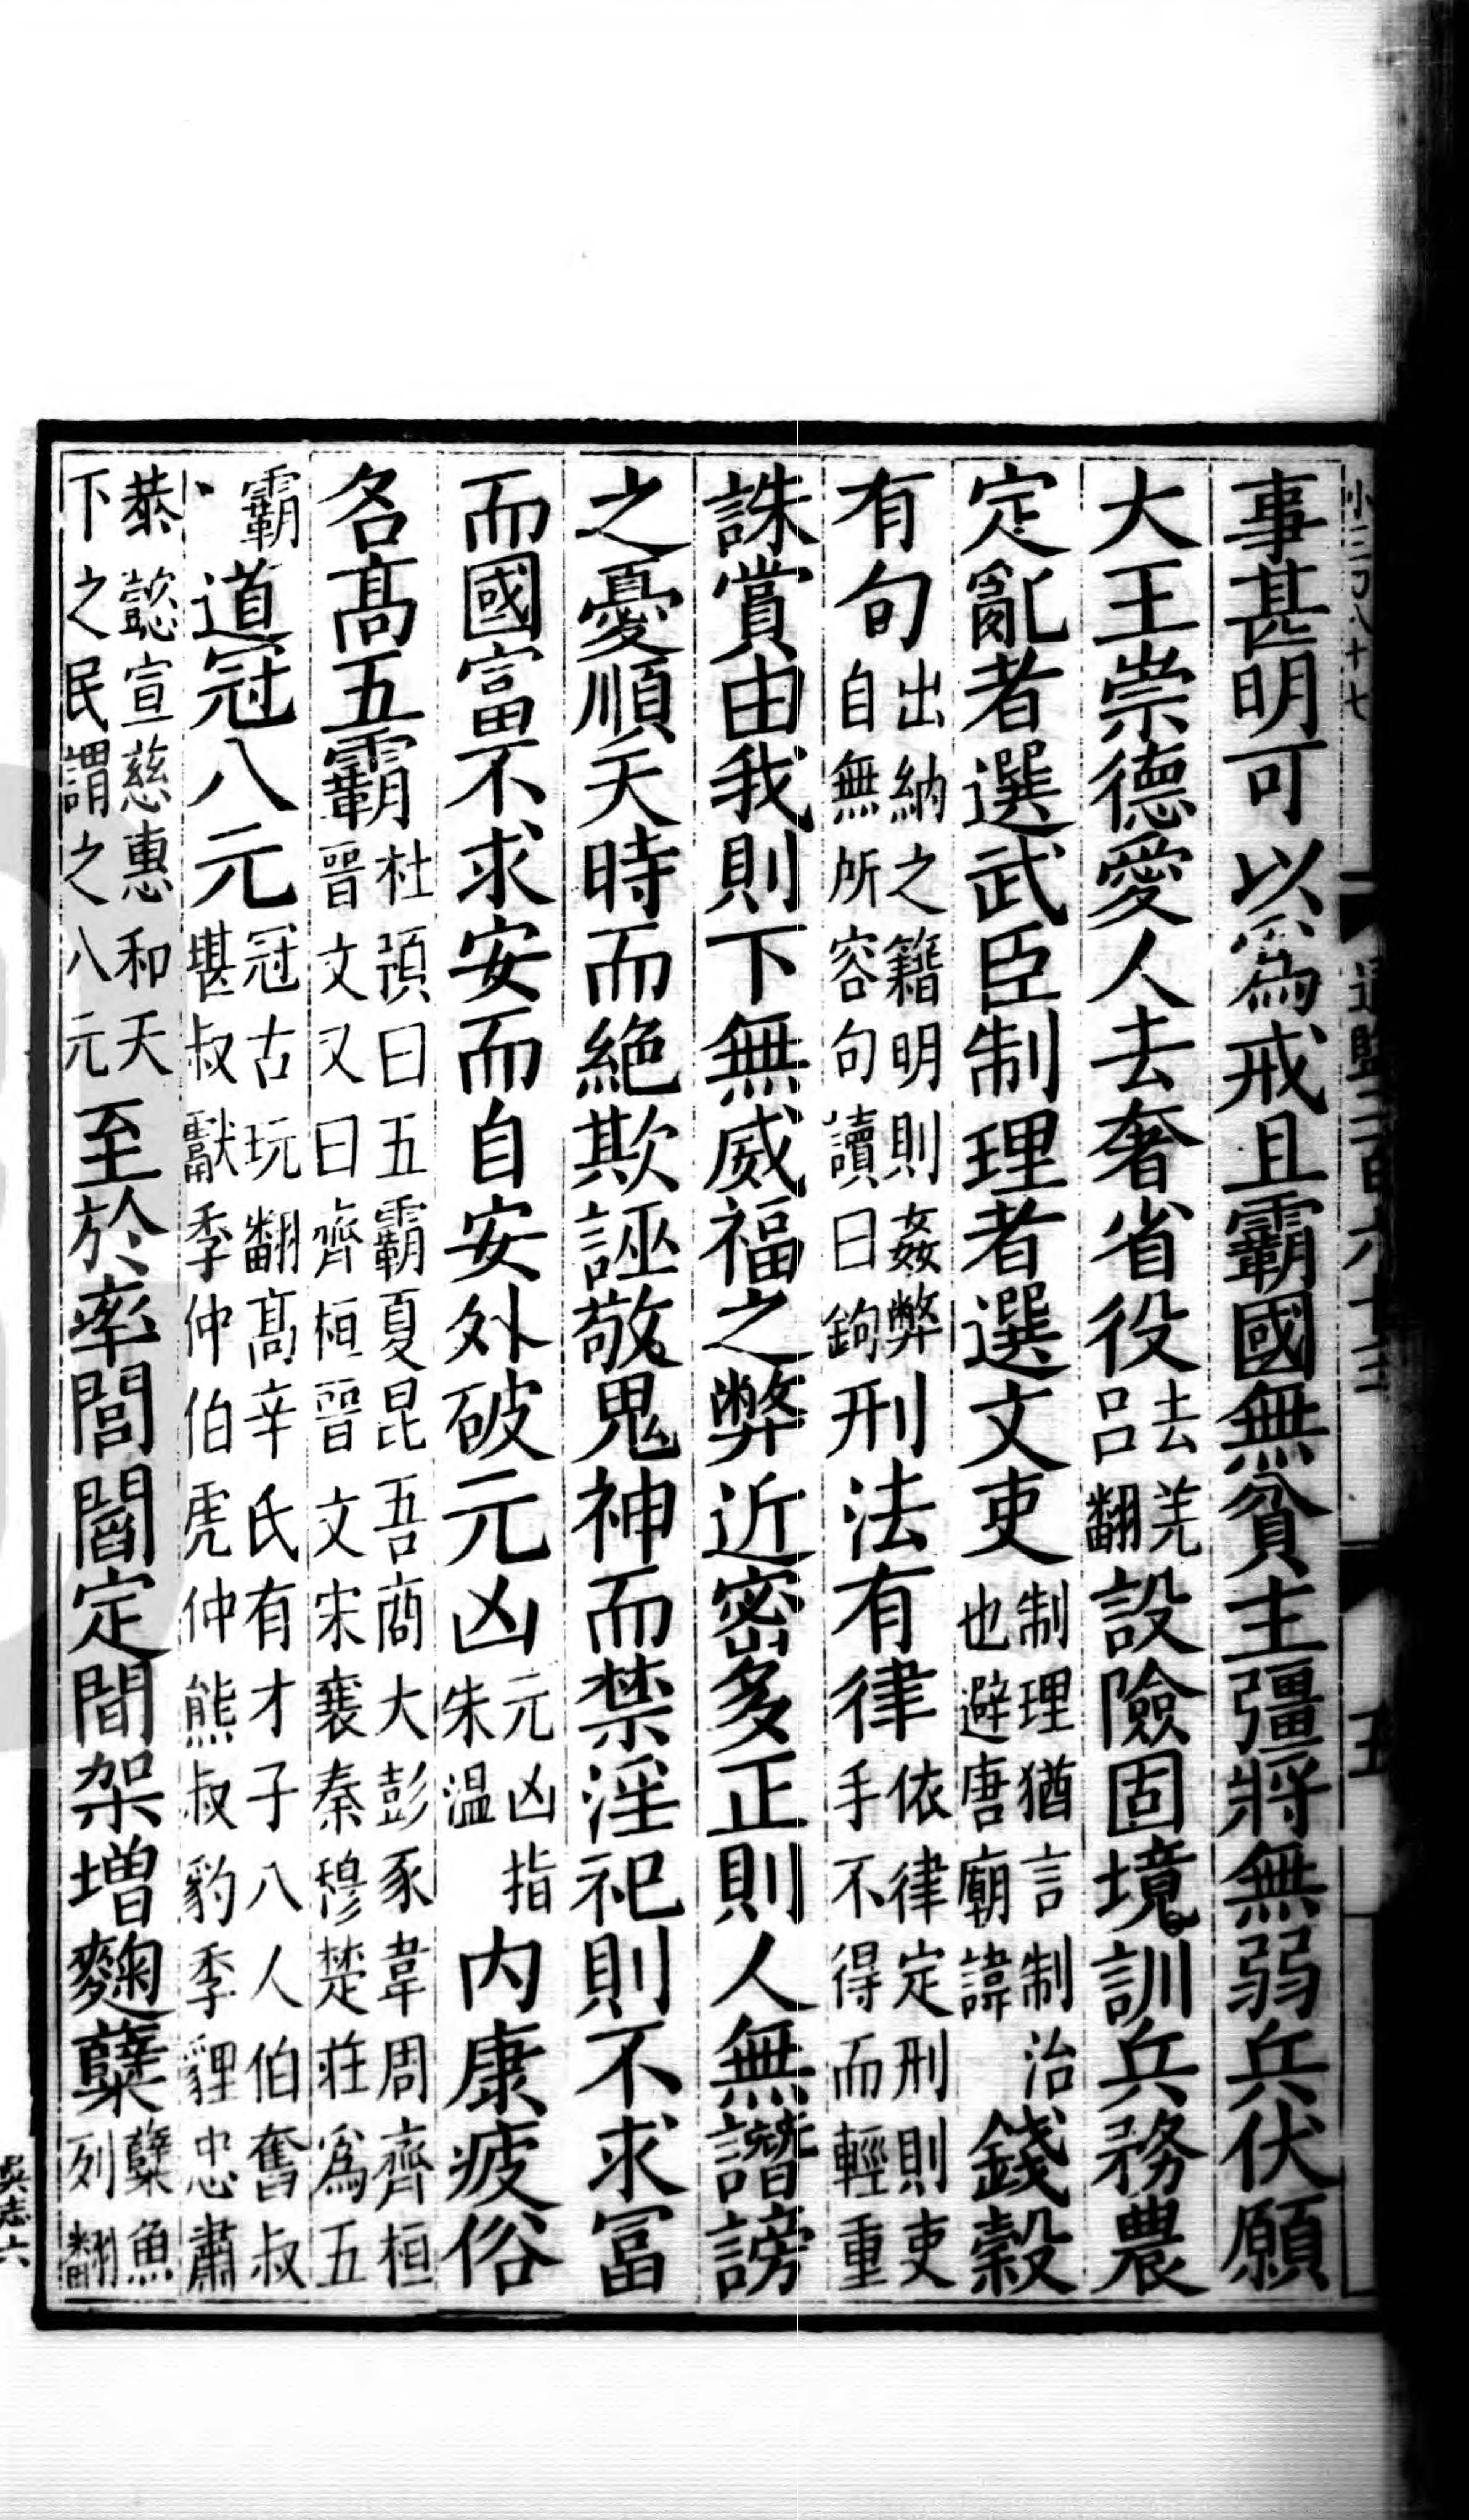 事甚明可以爲戒且霸國無貧主彊將無弱兵伏願
大王崇德愛人去奢省役去羌呂翻設險固境訓兵務農
定亂者選武臣制理者選文吏制理猶言制治也避唐廟諱錢穀
有句出納之籍明則姦弊自無所容句讀曰鉤刑法有律依律定刑則吏手不得而輕重
誅賞由我則下無威福之弊近密多正則人無譖謗
之憂順天時而絶欺誣敬鬼神而禁淫祀則不求冨
而國富不求安而自安外破元凶元凶指朱温内康疲俗
名髙五霸杜預曰五霸夏昆吾商大彭豕韋周齊桓晉文又曰齊桓晉文宋襄秦穆楚莊爲五
霸道冠八元冠古玩翻髙辛氏有才子八人伯奮叔堪叔獻季仲伯虎仲熊叔豹季貍忠肅
恭懿宣慈惠和天下之民謂之八元至於率閭閻定間架增麴糵糵魚列翻
五
吳志六